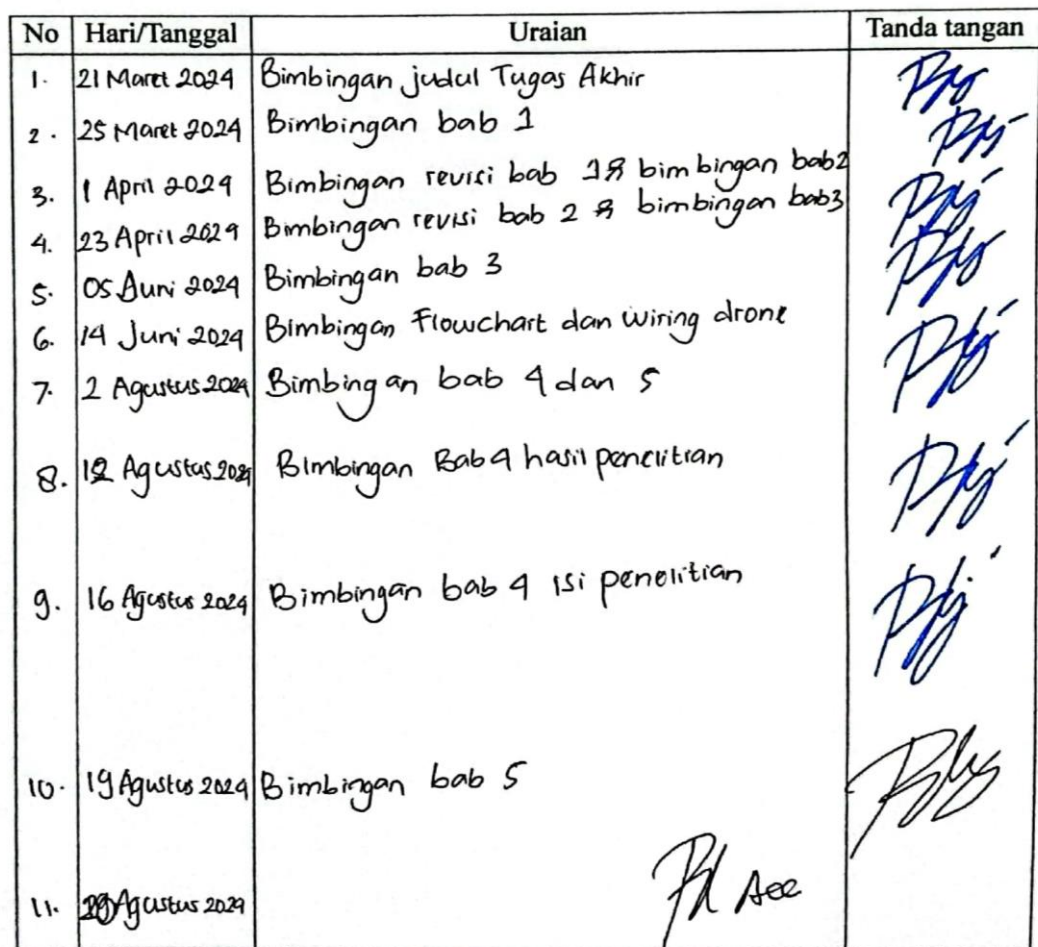 No Hari/Tanggal Uraian Tanda tangan
1. 21 Maret 2024 Bimbingan judul Tugas Akhir
2. 25 Maret 2024 Bimbingan bab 1
3. 1 April 2024 Bimbingan revisi bab 1 & bimbingan bab 2
4. 23 April 2024 Bimbingan revisi bab 2 & bimbingan bab 3
5. 05 Juni 2024 Bimbingan bab 3
6. 14 Juni 2024 Bimbingan Flowchart dan wiring drone
7. 2 Agustus 2024 Bimbingan bab 4 dan 5
8. 12 Agustus 2024 Bimbingan Bab 4 hasil penelitian
9. 16 Agustus 2024 Bimbingan bab 4 isi penelitian
10. 19 Agustus 2024 Bimbingan bab 5
11. Agustus 2024 Acc